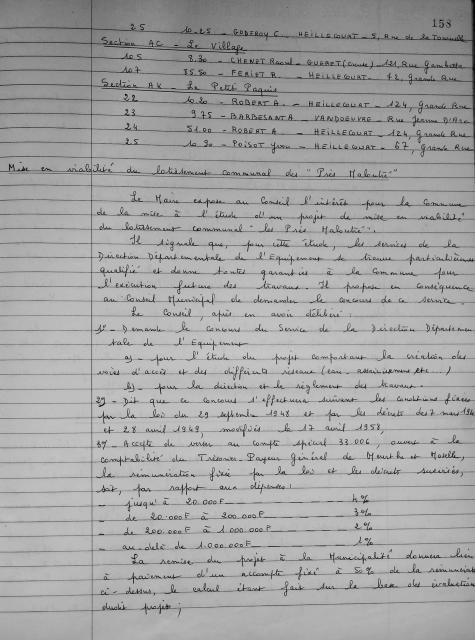 158
25 10.25 - GODEFROY C. HEILLECOURT - 5, Rue de la Tournelle
Section AC - Le Village
105 8.30 - CHENET Raoul - GUERET (Creuse) - 121, Rue Gambetta
107 85.50 - FERIET R. - HEILLECOURT - 72, Grande Rue
Section AK - Le Petit Paquis
22 10.20 - ROBERT A. - HEILLECOURT - 124, Grande Rue
23 9.75 - BARBESANT A VANDOEUVRE - Rue Jeanne D'Arc
24 51.00 - ROBERT A - HEILLECOURT - 124, Grande Rue
25 10.30 - POISOT Yvon - HEILLECOURT - 67, Grande Rue
Mise en viabilité du lotissement communal des "Près Maloutié"
Le Maire expose au Conseil l'intérêt pour la Commune
de la mise à l'étude d'un projet de mise en viabilité
du lotissement communal "les Près Maloutié".
Il signale que, pour cette étude, les services de la
Direction Départementale de l'Equipement se trouve particulièrement
qualifié et donne toutes garanties à la Commune pour
l'exécution future des travaux. Il propose en conséquence
au Conseil Municipal de demander le concours de ce service.
Le Conseil, après en avoir délibéré :
1° - Demande le concours du Service de la Direction Départemen
tale de l'Equipement
a) - pour l'étude du projet comportant la création des
voies d'accès et des différents réseaux (eau - assainissement etc...)
b) - pour la direction et le règlement des travaux.
2° - Dit que ce concours s'effectuera suivant les conditions fixées
par la loi du 29 septembre 1948 et par les décrets des 7 mars 1949
et 28 avril 1949, modifiés le 17 avril 1958,
3° - Accepte de verser au compte spécial 33.006, ouvert à la
comptabilité du Trésorier-Payeur Général de Meurthe et Moselle,
la rémunération fixée par la loi et les décrets susvisés,
soit, par rapport aux dépenses :
- jusqu'à 20.000F 4%
- de 20.000F à 200.000F 3%
- de 200.000F à 1.000.000F 2%
- au-delà de 1.000.000F 1%
La remise du projet à la Municipalité donnera lieu
à paiement d'un acompte fixé à 50% de la rémunération
ci-dessus, le calcul étant fait sur la base des évaluations
dudit projet ;